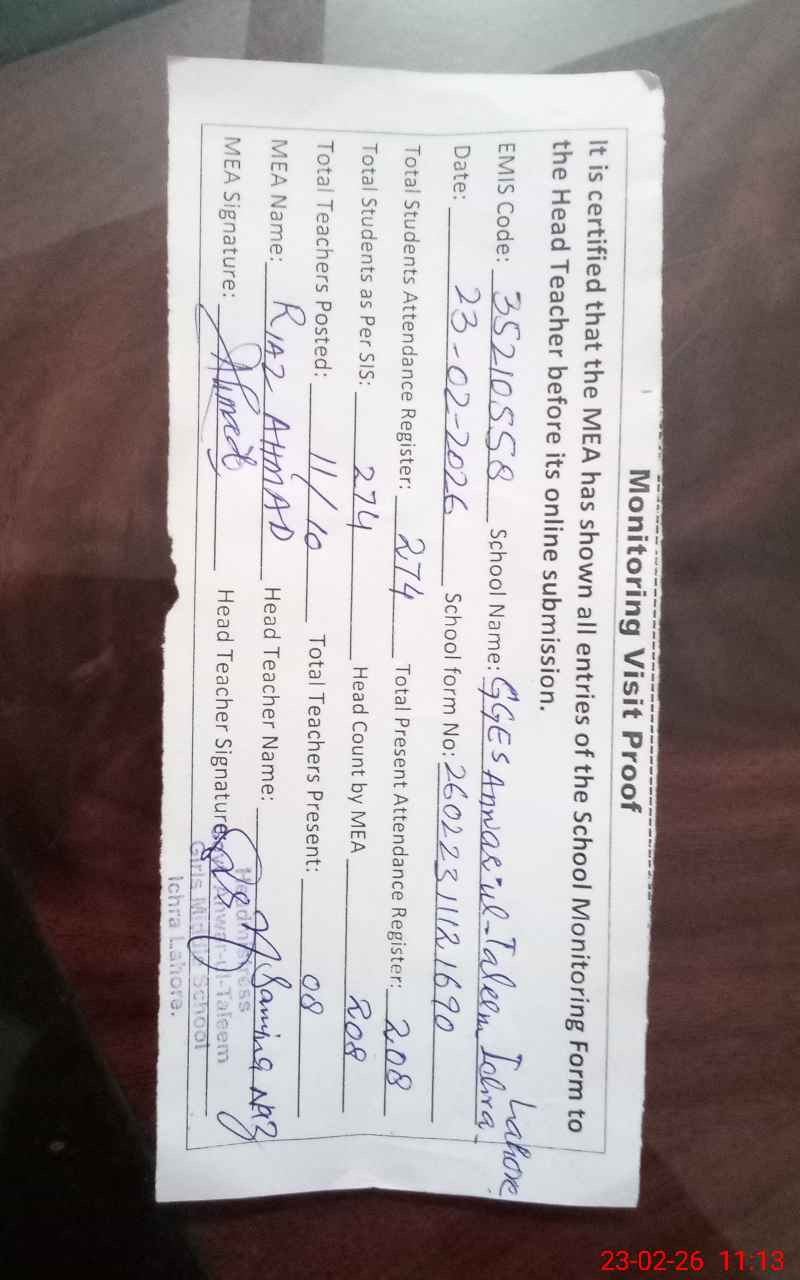 Monitoring Visit Proof
It is certified that the MEA has shown all entries of the School Monitoring Form to
the Head Teacher before its online submission.
EMIS Code: 35210558 School Name: GGES Anwar-ul-Taleem Ichra Lahore.
Date: 23-02-2026 School form No: 2602231112 1690
Total Students Attendance Register: 274 Total Present Attendance Register: 208
Total Students as Per SIS: 274 Head Count by MEA 208
Total Teachers Posted: 11/10 Total Teachers Present: 08
MEA Name: RIAZ AHMAD Head Teacher Name: Samina NAZ
MEA Signature: Ahmad Head Teacher Signature
Headmistress
Anwar-ul-Taleem
Girls Middle School
Ichra Lahore.
23-02-26 11:13